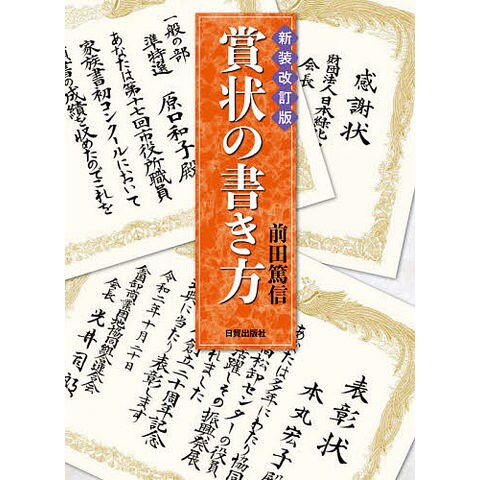 新装改訂版
賞状の書き方
前田篤信
日貿出版社
感謝状
財団法人日本緑化
会長
一般の部
準特選
原口和子殿
あなたは第十七回市役所職員
家族書初コンクールにおいて
の成績を収めたのでこれを
表彰状
本丸宏子殿
あなたは多年にわたり協同
卸センターの役員
活躍しその振興発展
されました
に当たり創立二十周年記念
表彰します
令和二年十月二十日
会長
光井司郎